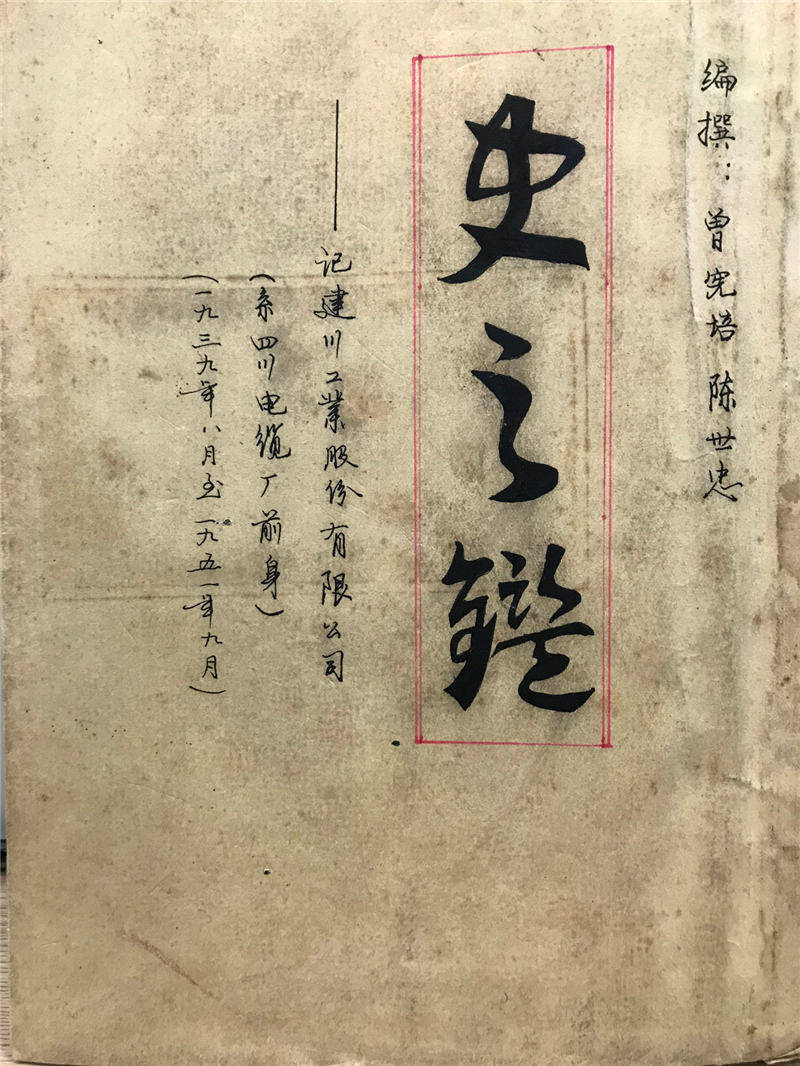 编撰：曾宪培 陈世忠
史之鑑
——记建川工业股份有限公司
（系四川电缆厂前身）
（一九三九年八月至一九五一年九月）